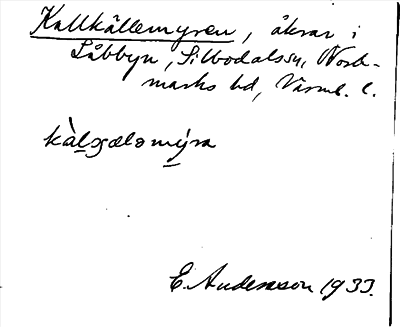 Kallkällemyren, åkrar i
Låbbyn, Silbodals sn, Nord-
marks hd, Värml. l.
kàlɕælomýra
E. Andersson 1933.